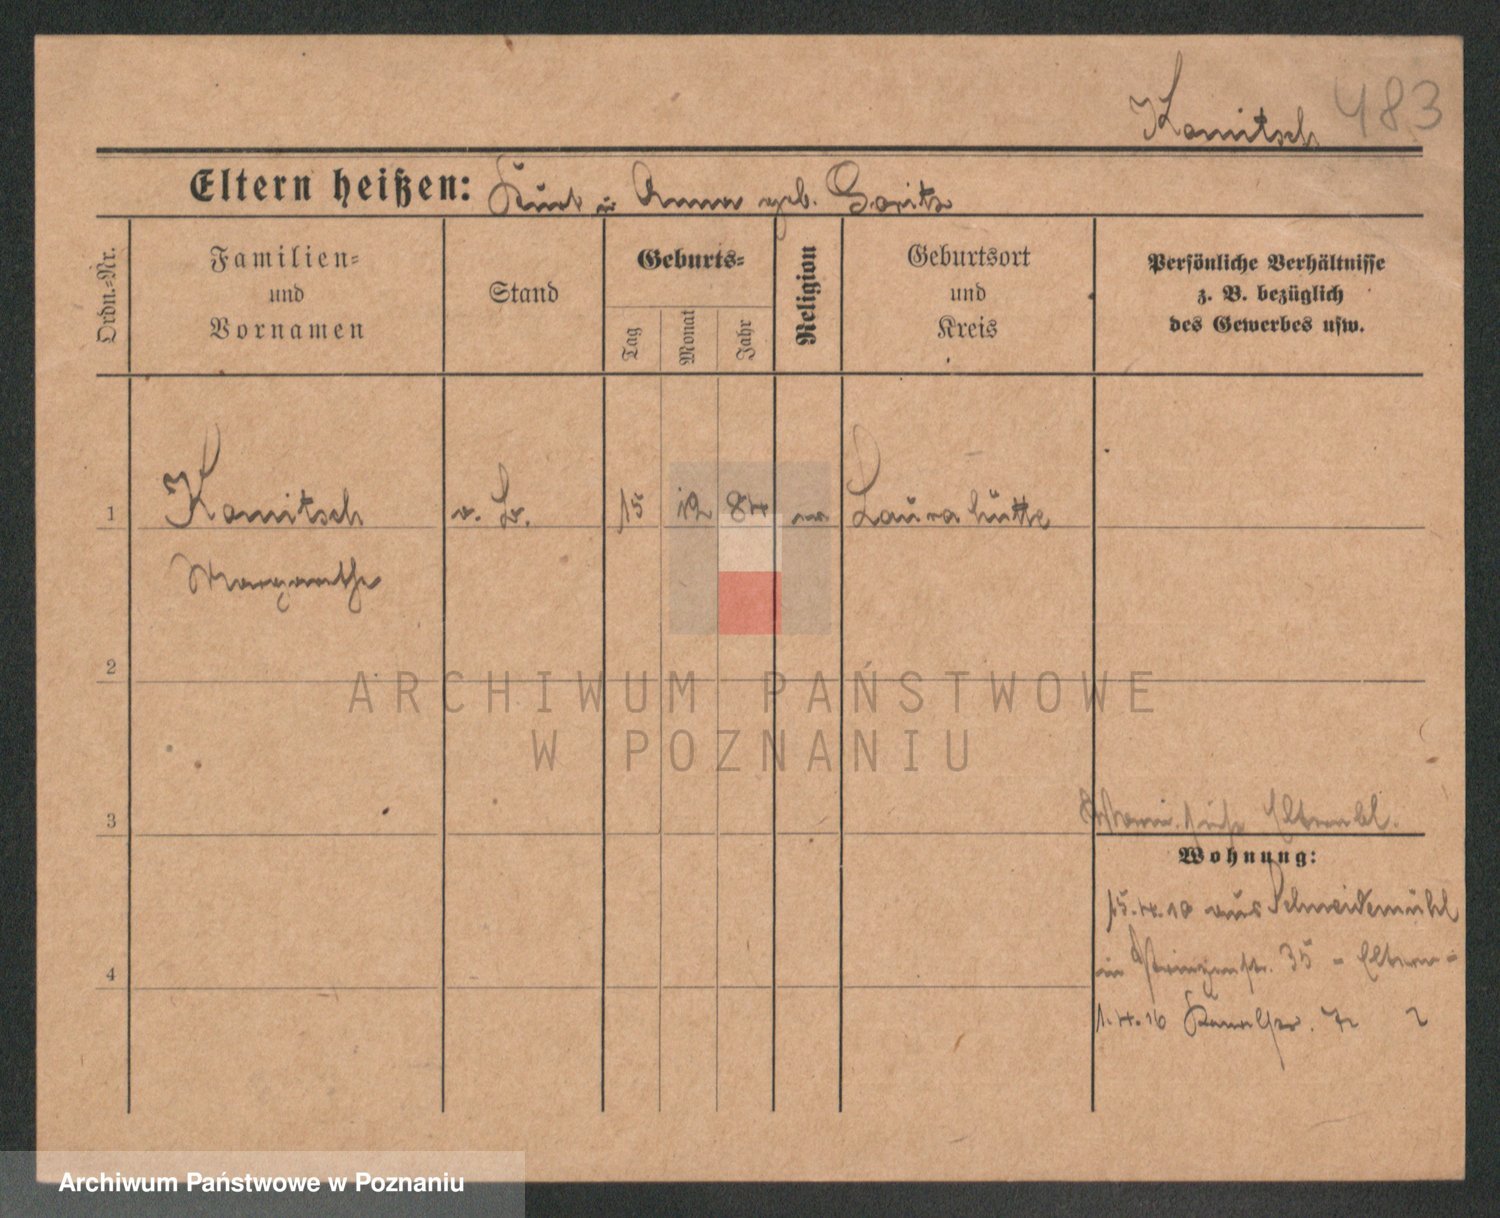 Kamitsch 483
Eltern heißen: Kurt u Anna geb. Goritz
Ordn.=Nr.
Familien=
und
Vornamen
Stand
Geburts=
Tag
Monat
Jahr
Religion
Geburtsort
und
Kreis
Persönliche Verhältnisse
z. B. bezüglich
des Gewerbes usw.
1 Kamitsch 15 12 84 Laurahütte
Margarethe
2
ARCHIWUM PAŃSTWOWE
W POZNANIU
3
Wohnung:
15.4.10 aus Schneidemühl
4
in 35 - Eltern -
1.4.16 Kanalstr.
Archiwum Państwowe w Poznaniu